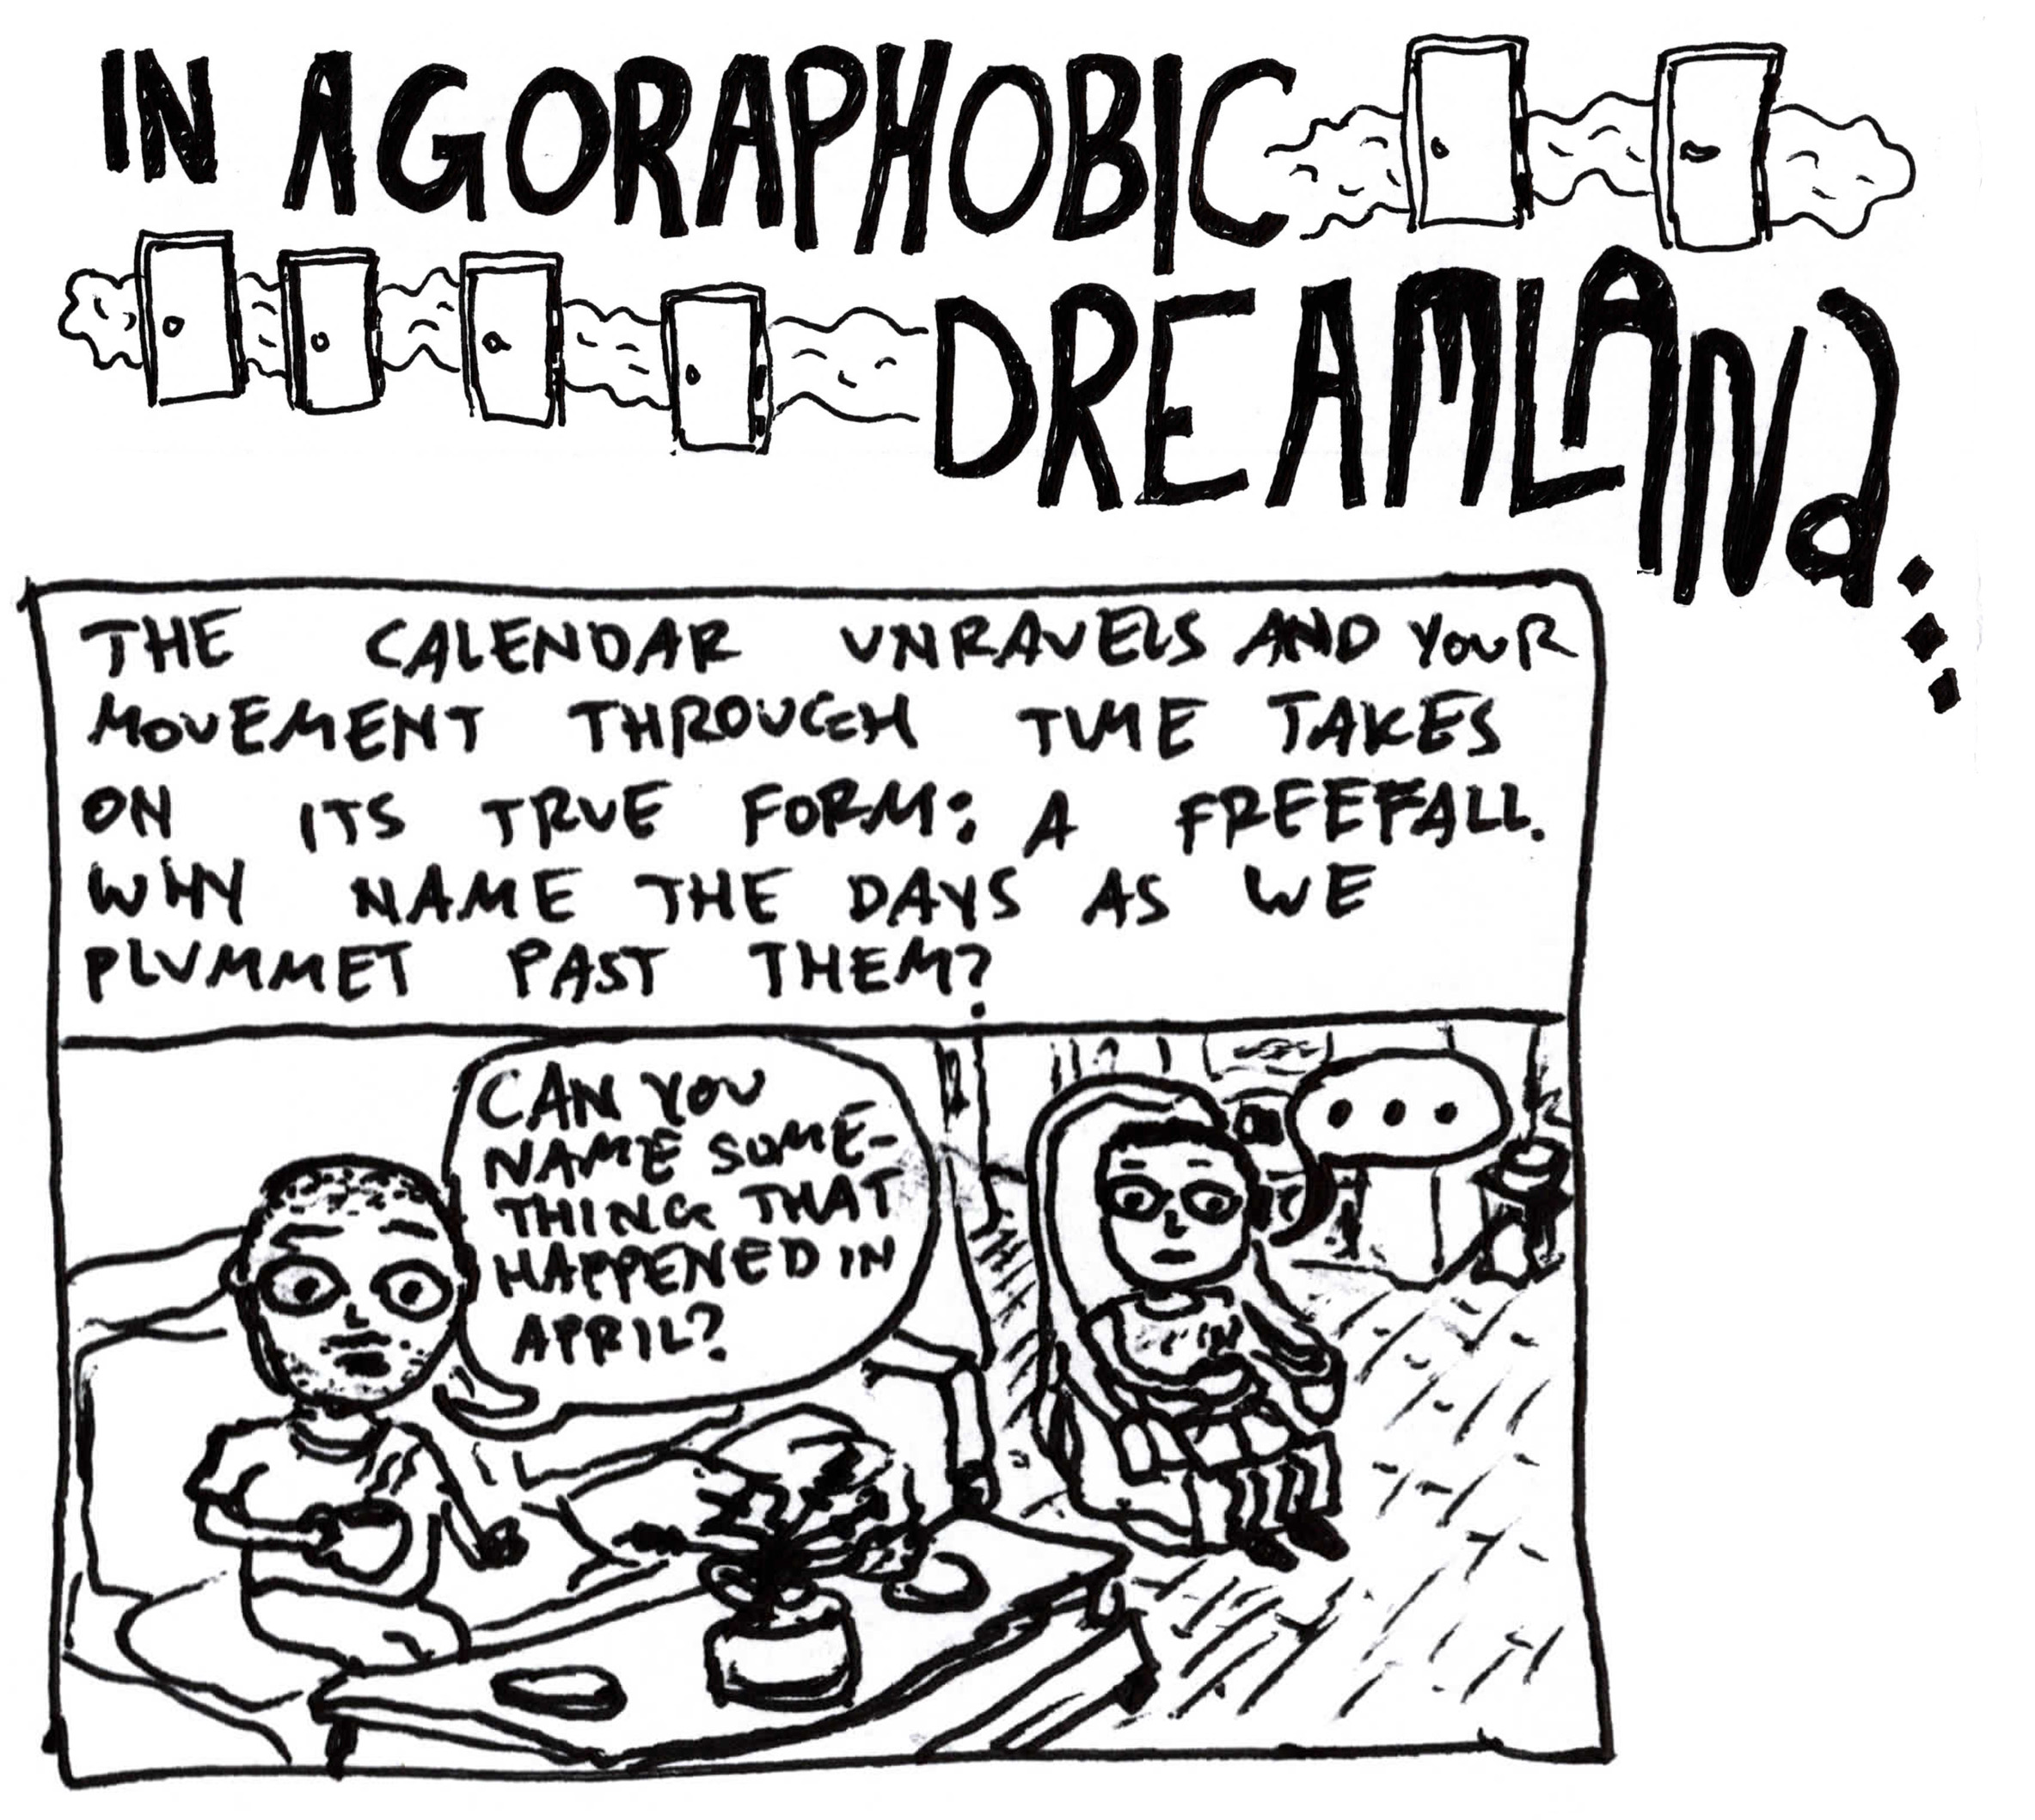 IN AGORAPHOBIC
DREAMLANd...
THE CALENDAR UNRAVELS AND YOUR
MOVEMENT THROUGH TIME TAKES
ON ITS TRUE FORM: A FREEFALL.
WHY NAME THE DAYS AS WE
PLUMMET PAST THEM?
CAN YOU
NAME SOME-
THING THAT
HAPPENED IN
APRIL?
...